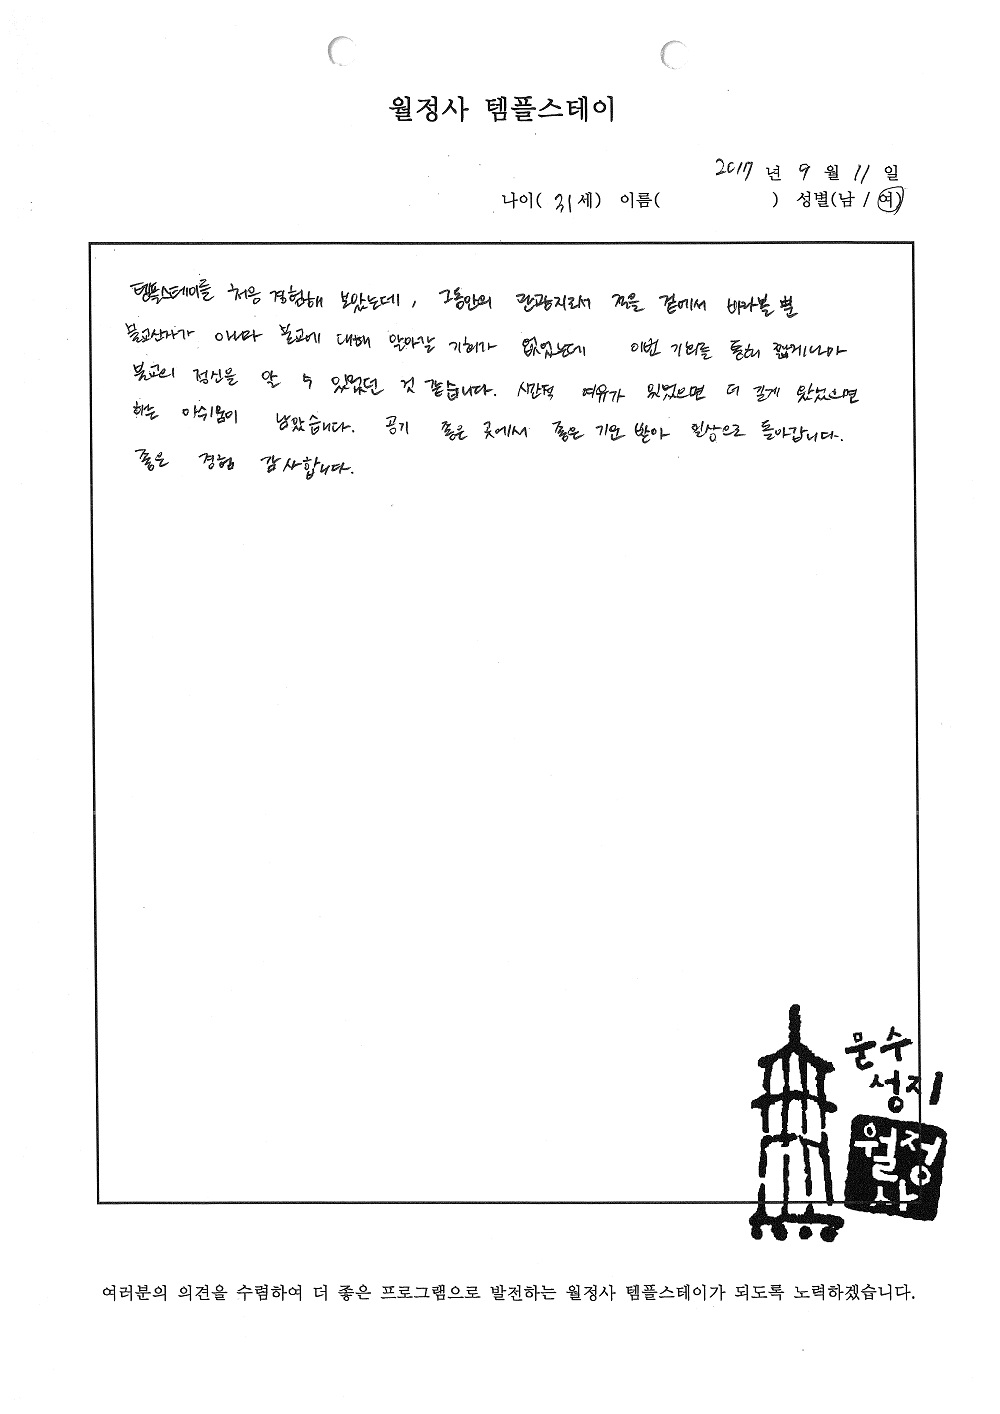 월정사 템플스테이
2017 년 9 월 11 일
나이( 31세) 이름( ) 성별(남 / 여)
템플스테이를 처음 경험해 보았는데, 그동안의 관광지로서 절을 곁에서 바라볼 뿐
불교신자가 아니라 불교에 대해 알아갈 기회가 없었는데 이번 기회를 통해 짧게나마
불교의 정신을 알 수 있었던 것 같습니다. 시간적 여유가 있었으면 더 길게 왔었으면
하는 아쉬움이 남았습니다. 공기 좋은 곳에서 좋은 기운 받아 일상으로 돌아갑니다.
좋은 경험 감사합니다.
문수
성지
월정
사
여러분의 의견을 수렴하여 더 좋은 프로그램으로 발전하는 월정사 템플스테이가 되도록 노력하겠습니다.